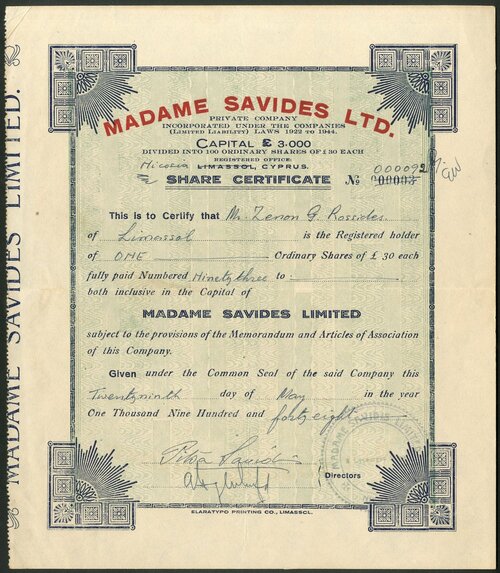 MADAME SAVIDES LIMITED.
MADAME SAVIDES LTD.
PRIVATE COMPANY
INCORPORATED UNDER THE COMPANIES
(LIMITED LIABILITY) LAWS 1922 TO 1944.
CAPITAL £ 3.000
DIVIDED INTO 100 ORDINARY SHARES OF £ 30 EACH
REGISTERED OFFICE:
Nicosia LIMASSOL, CYPRUS.
SHARE CERTIFICATE No
This is to Certify that Mr. Zenon G. Rossides
of Limassol is the Registered holder
of ONE Ordinary Shares of £ 30 each
fully paid Numbered Ninety three to
both inclusive in the Capital of
MADAME SAVIDES LIMITED
subject to the provisions of the Memorandum and Articles of Association
of this Company.
Given under the Common Seal of the said Company this
Twentyninth day of May in the year
One Thousand Nine Hundred and forty eight
Directors
ELARATYPO PRINTING CO., LIMASSOL.